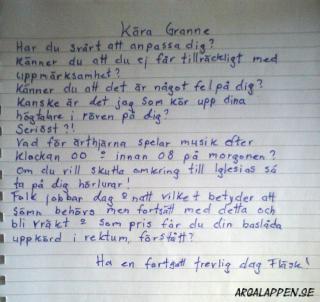 Kära Granne
Har du svårt att anpassa dig?
Känner du att du ej får tillräckligt med
uppmärksamhet?
Känner du att det är något fel på dig?
Kanske är det jag som kör upp dina
högtalare i röven på dig?
Seriöst?!
Vad för ärthjärna spelar musik efter
klockan 00 & innan 08 på morgonen?
Om du vill skutta omkring till Iglesias så
ta på dig hörlurar!
Folk jobbar dag & natt vilket betyder att
sömn behövs men fortsätt med detta och
bli vräkt & som pris får du din baslåda
uppkörd i rektum, förstått?
Ha en fortsatt trevlig dag Fläsk!
ARGALAPPEN.SE